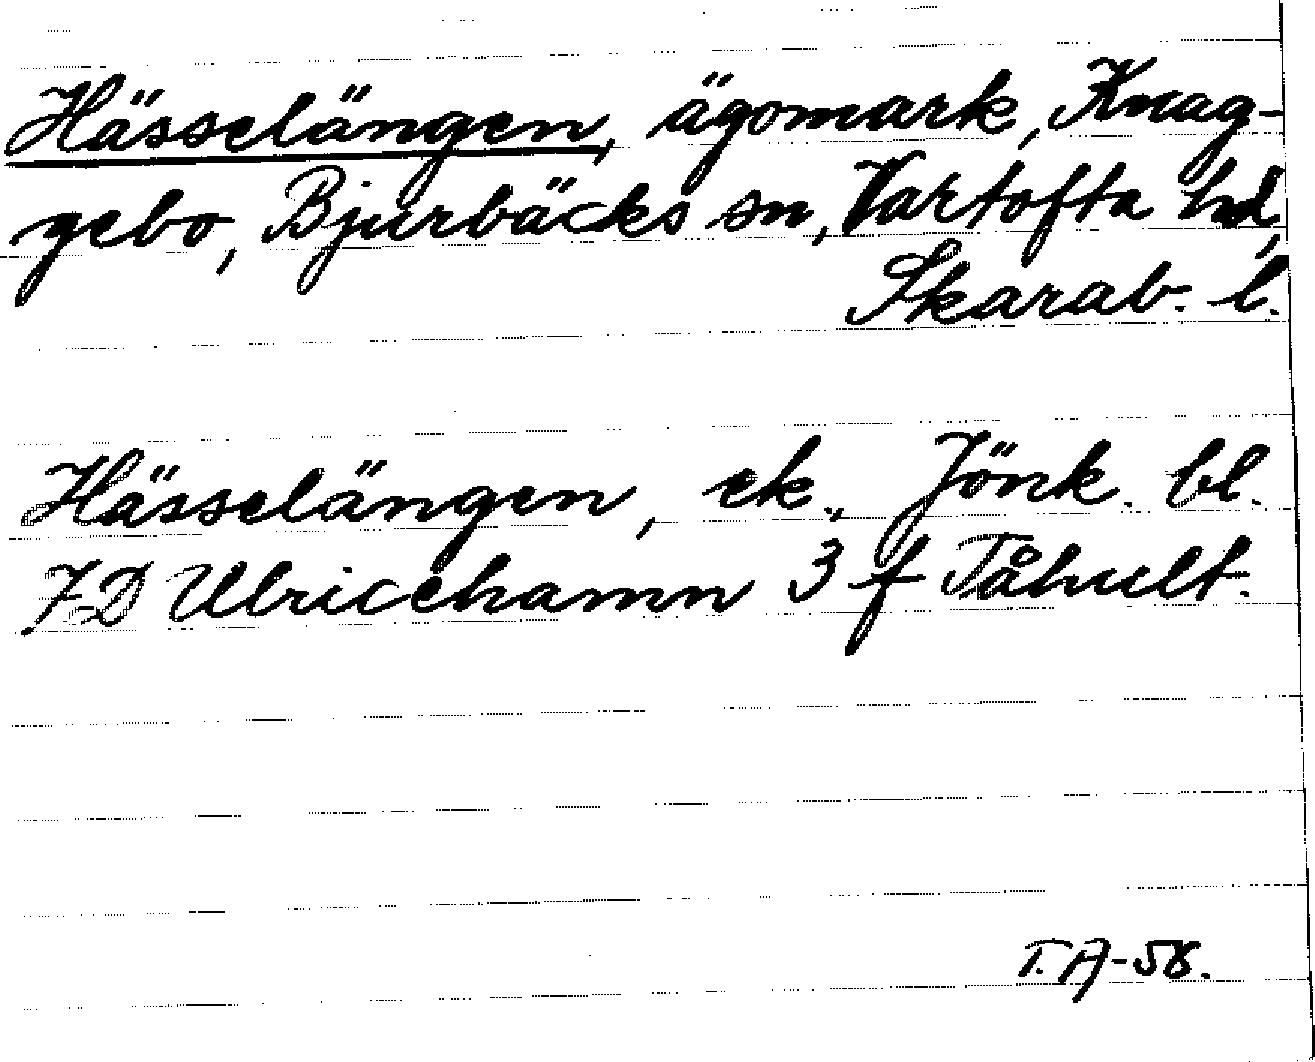 Hässelängen, ägomark, Knag-
gebo, Bjurbäcks sn, Vartofta hd,
Skarab. l.
Hässelängen, ek., Jönk. bl.
7D Ulricehamn 3 f Tåhult.
T.A-58.